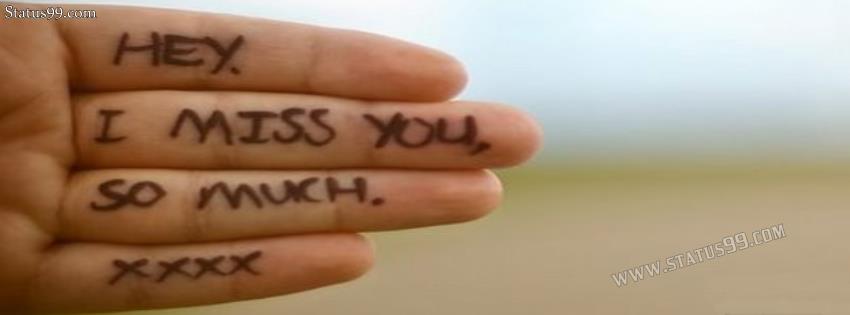 Status99.com
HEY.
I MISS YOU,
SO MUCH.
xxxx
WWW.STATUS99.COM